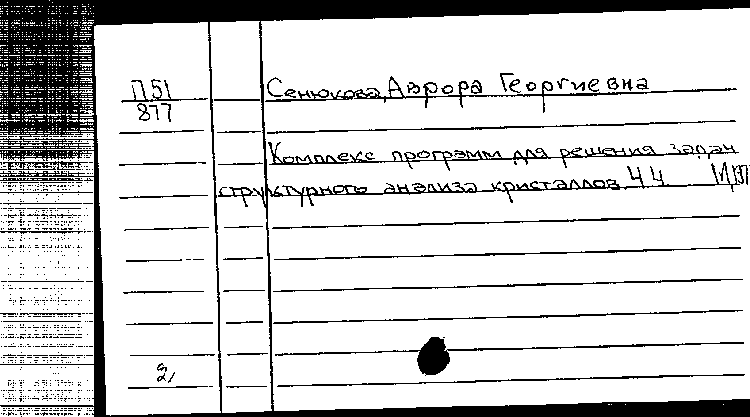 П51
877
Сенюкова, Аврора Георгиевна
Комплекс программ для решения задач
структурного анализа кристаллов. Ч 4